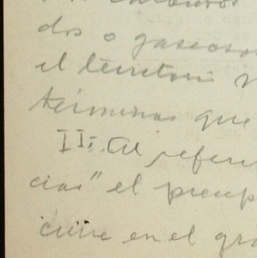 dos o gaseoso
el territori
términos que
II: Al referi
cias" el precep
curre en el gra